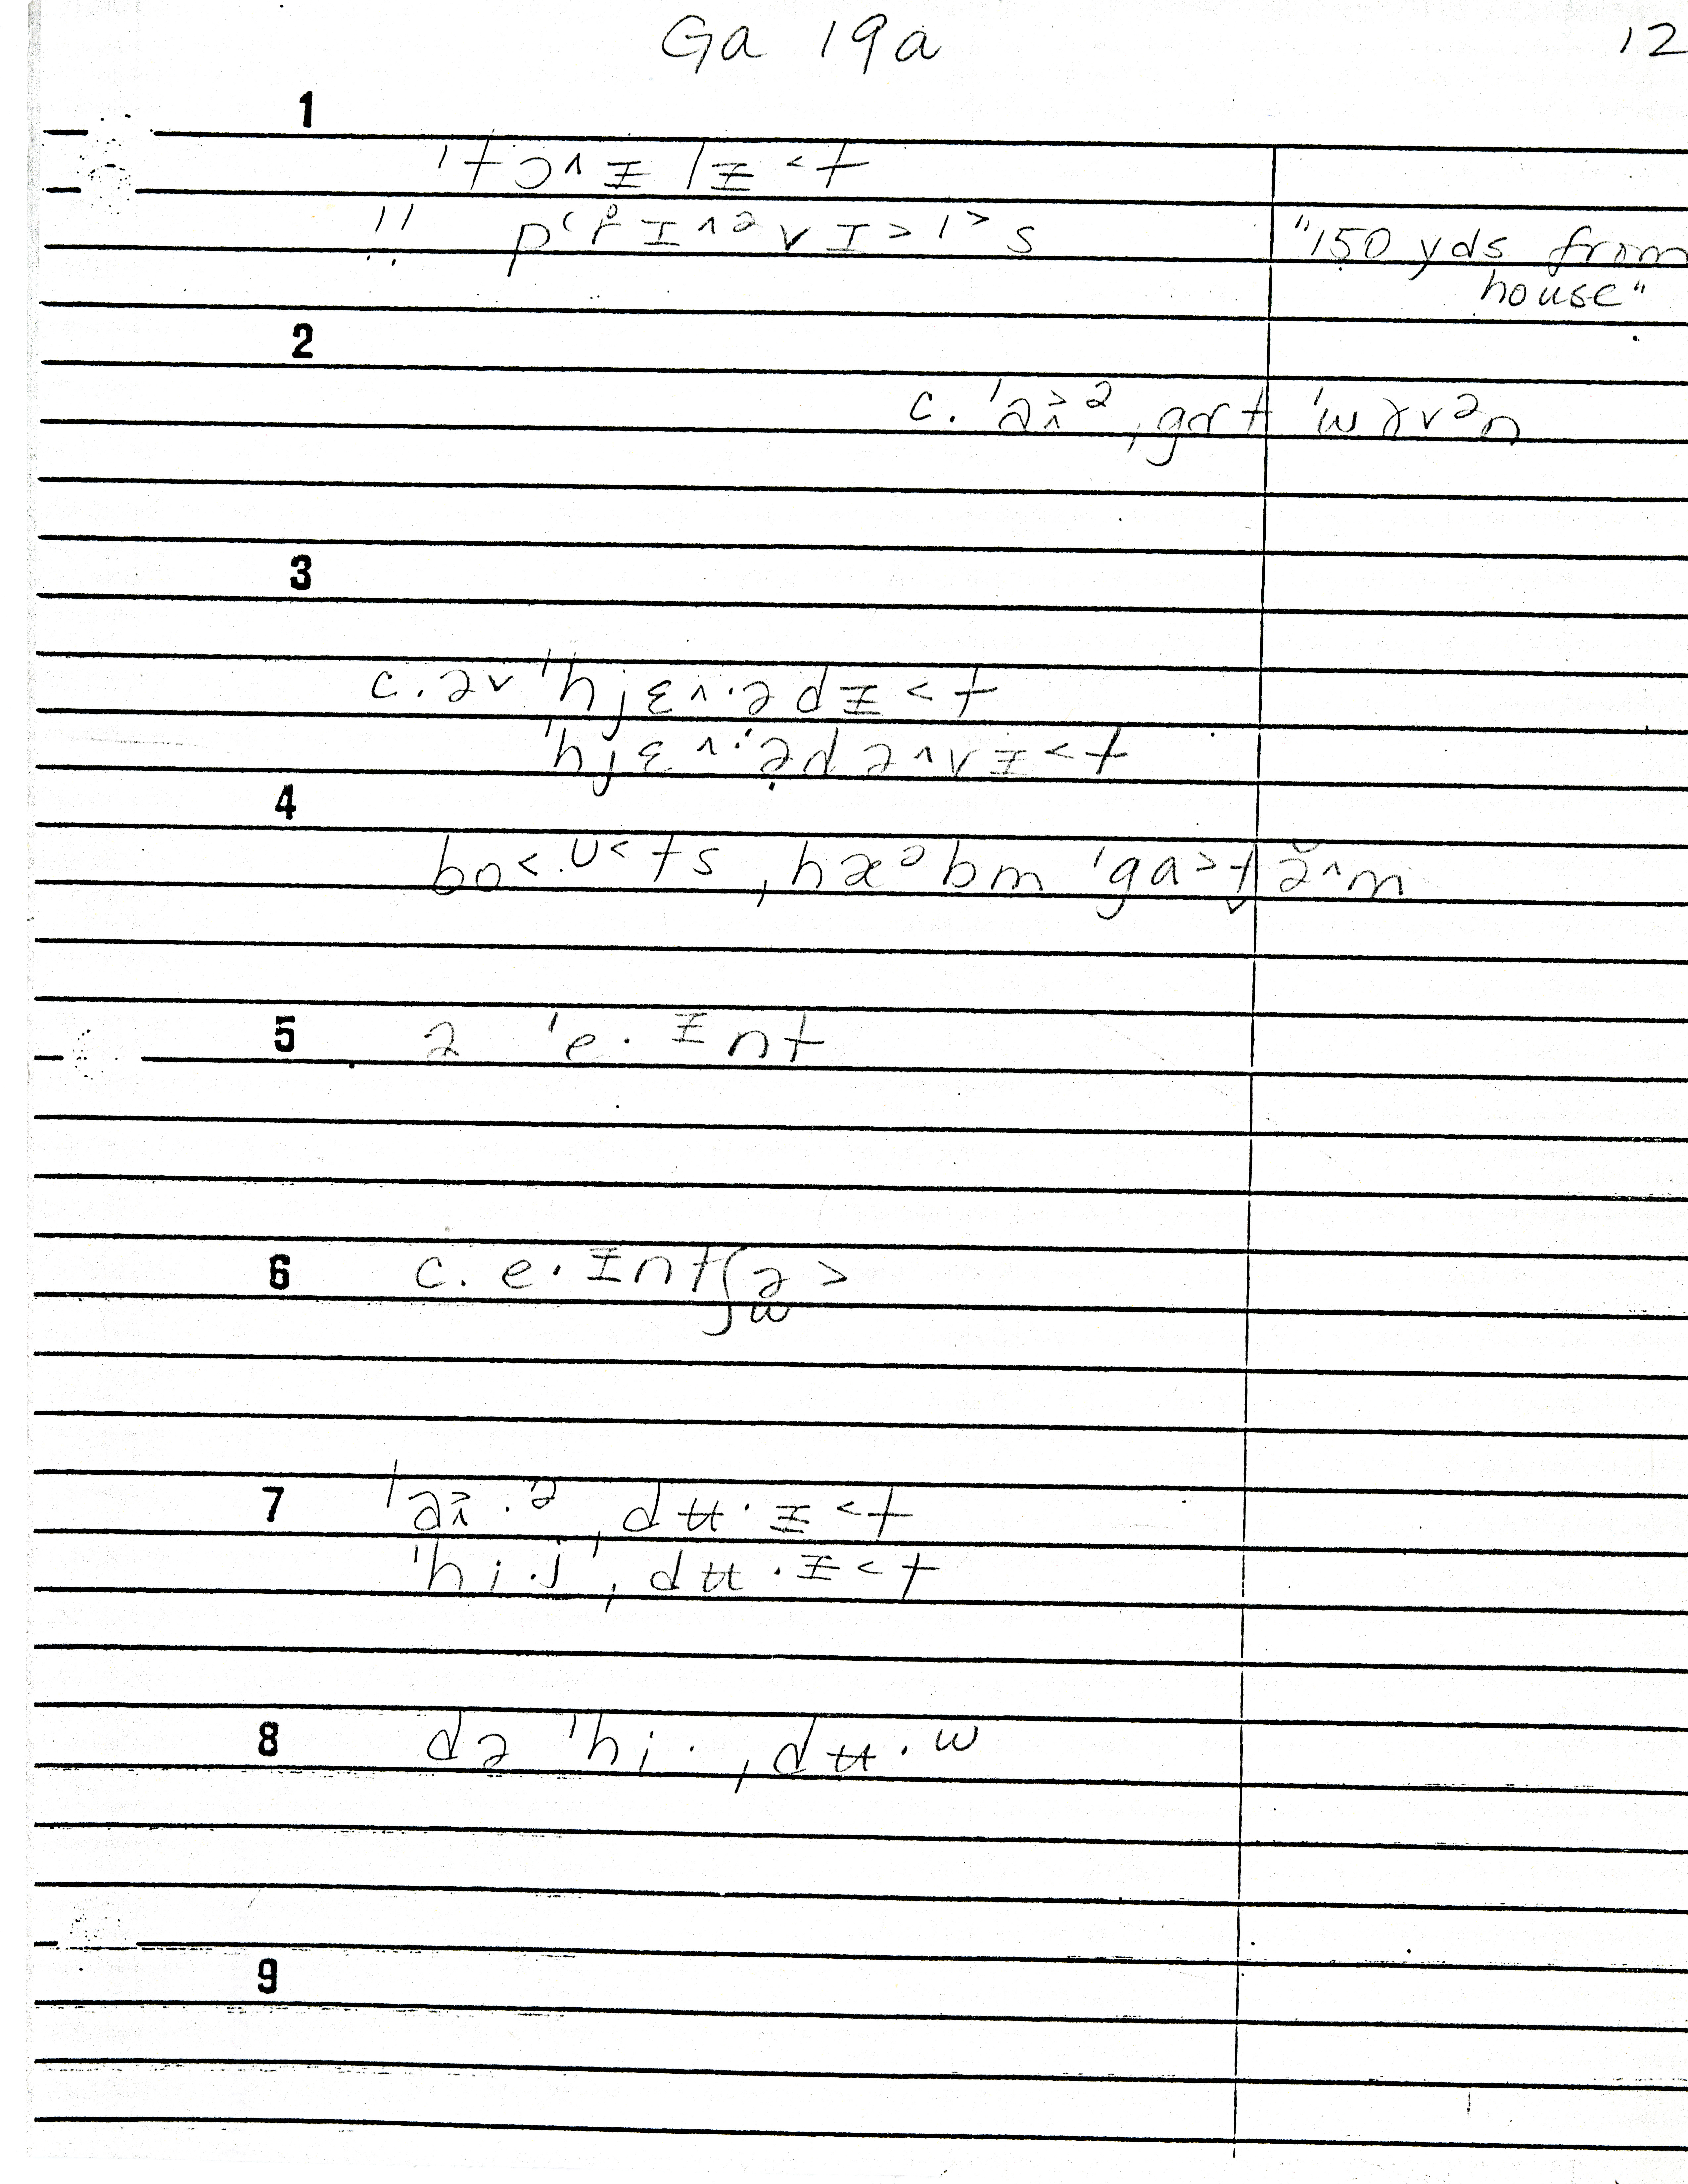 Ga 19a 12
1
ˈtɔ˄ɨlɨ˂t
" pʻr̥ɪ˄ə˅ɪ˃l˃s "150 yds from
house"
2
c. ˈə ,gɑt ˈwɤ˅ən
3
c. ə˅ ˈhjɛ˄·ədɨ˂t
ˈhjɛ˄·ədə˄˅ɨ˂t
4
bo˂·ʊ˂ts ,hæᵊbm ˈga˃t̬ ə̆˄m
5 ə ˈe·ɪnt
6 c. e·ɪntʃə˃
w
7 ˈə ,dʉ·ɨ˂t
ˈhi·j ,dʉ·ɨ˂t
8 də ˈhi· ,dʉ·w
9